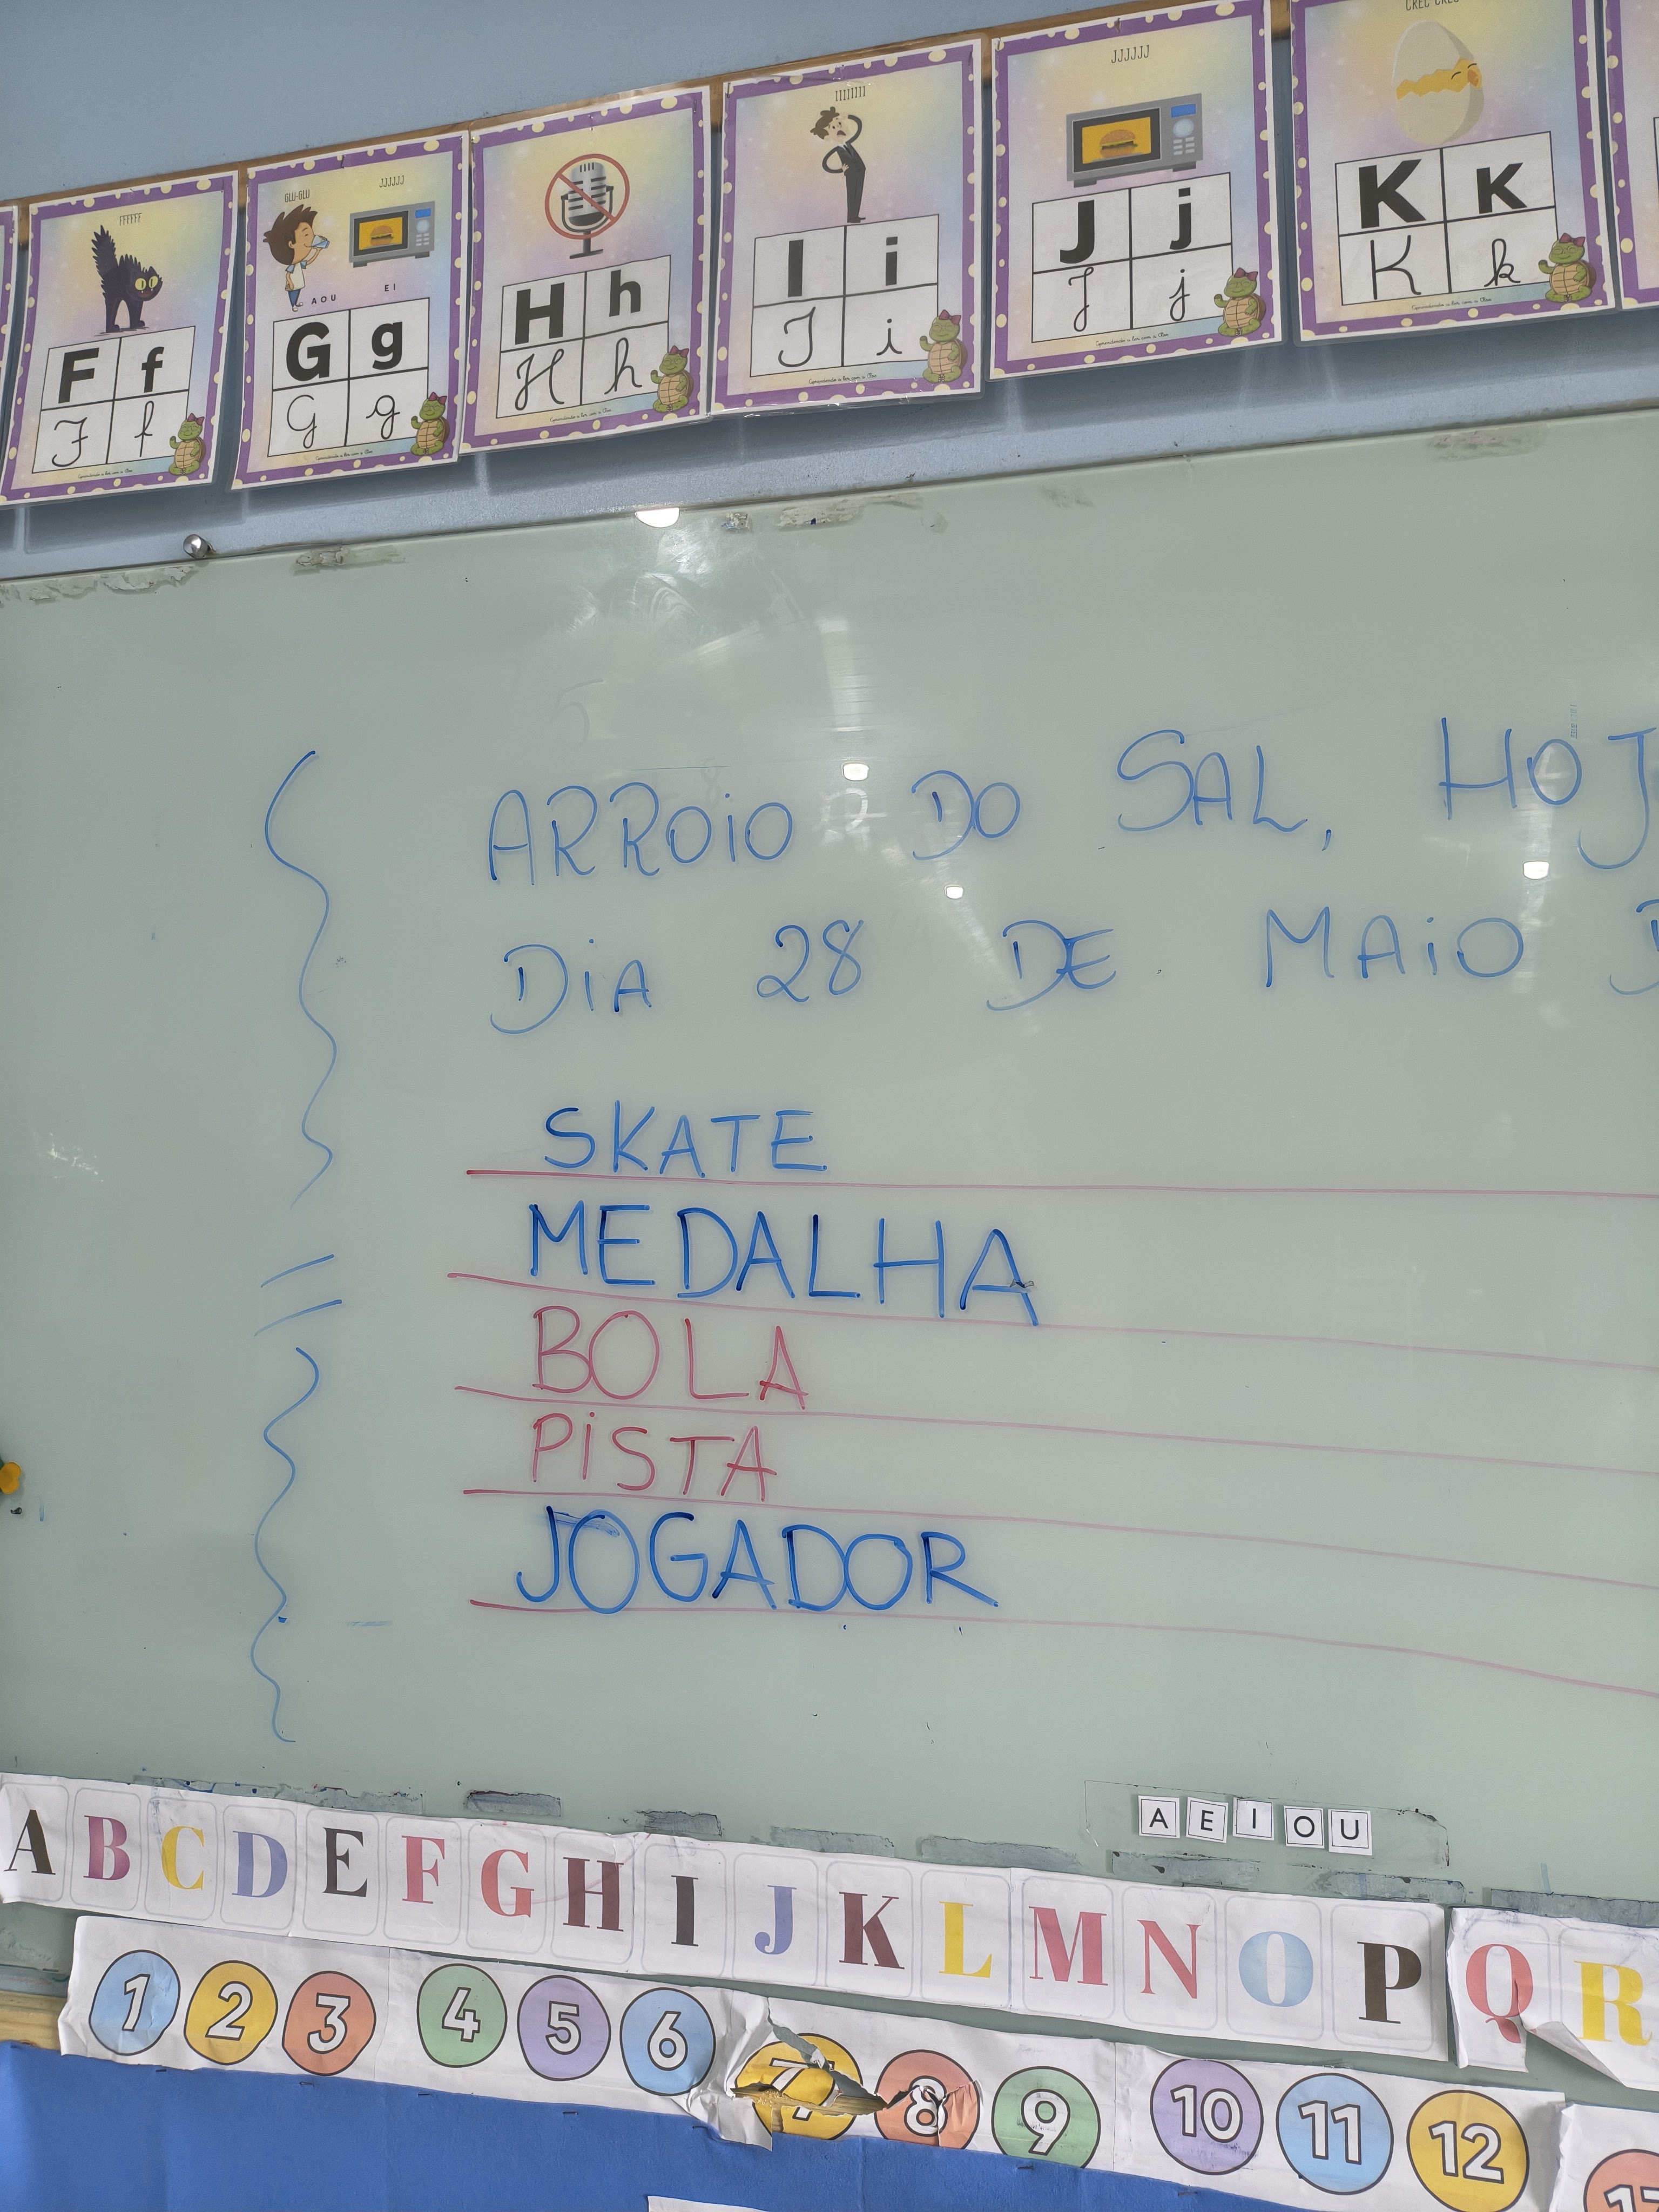 FFFFFF
F f
F f
GLU-GLU JJJJJJ
A O U E I
G g
G g
H h
H h
IIIIIIII
I i
I i
JJJJJJ
J j
J j
K k
K k
ARROIO DO SAL, HOJ
DIA 28 DE MAIO D
SKATE
MEDALHA
BOLA
PISTA
JOGADOR
A E I O U
A B C D E F G H I J K L M N O P Q R
1 2 3 4 5 6 7 8 9 10 11 12